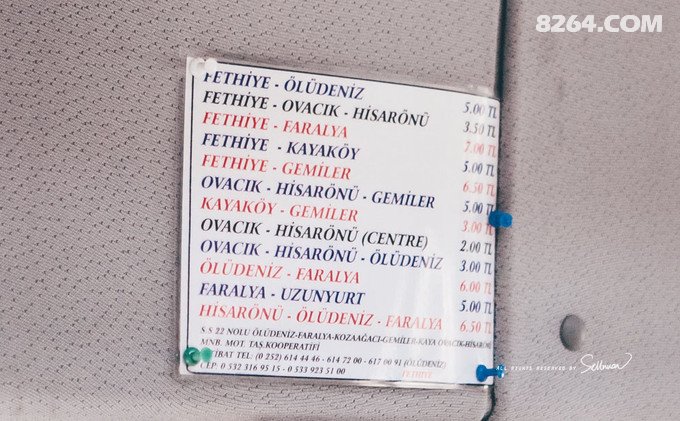 8264.COM
FETHİYE - ÖLÜDENİZ 5.00 TL
FETHİYE - OVACIK - HİSARÖNÜ 3.50 TL
FETHİYE - FARALYA 7.00 TL
FETHİYE - KAYAKÖY 5.00 TL
FETHİYE - GEMİLER 6.50 TL
OVACIK - HİSARÖNÜ - GEMİLER 5.00 TL
KAYAKÖY - GEMİLER 3.00 TL
OVACIK - HİSARÖNÜ (CENTRE) 2.00 TL
OVACIK - HİSARÖNÜ - ÖLÜDENİZ 3.00 TL
ÖLÜDENİZ - FARALYA 6.00 TL
FARALYA - UZUNYURT 5.00 TL
HİSARÖNÜ - ÖLÜDENİZ - FARALYA 6.50 TL
S.S 22 NOLU ÖLÜDENİZ-FARALYA-KOZAAĞACI-GEMİLER-KAYA OVACIK-HİSARÖNÜ
MNB. MOT. TAŞ.KOOPERATİFİ
TİBAT TEL: (0 252) 614 44 46 - 614 72 00 - 617 00 91 (ÖLÜDENİZ)
CEP: 0 532 316 95 15 - 0 533 923 51 00 FETHİYE
ALL RIGHTS RESERVED BY